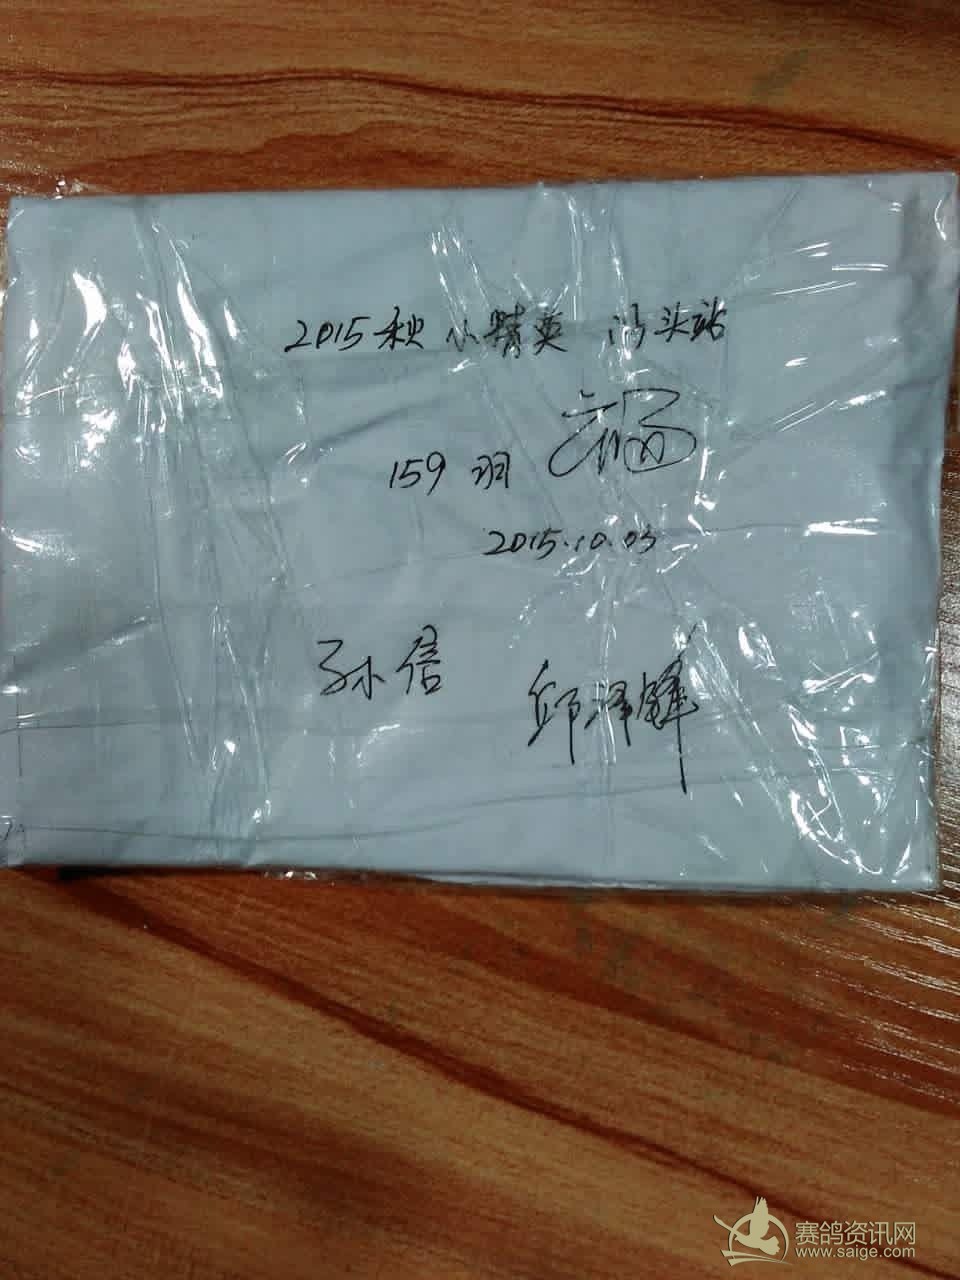 2015秋 小精英 汕头站
159羽
2015.10.03
孙信 邱泽锋
赛鸽资讯网
www.saige.com